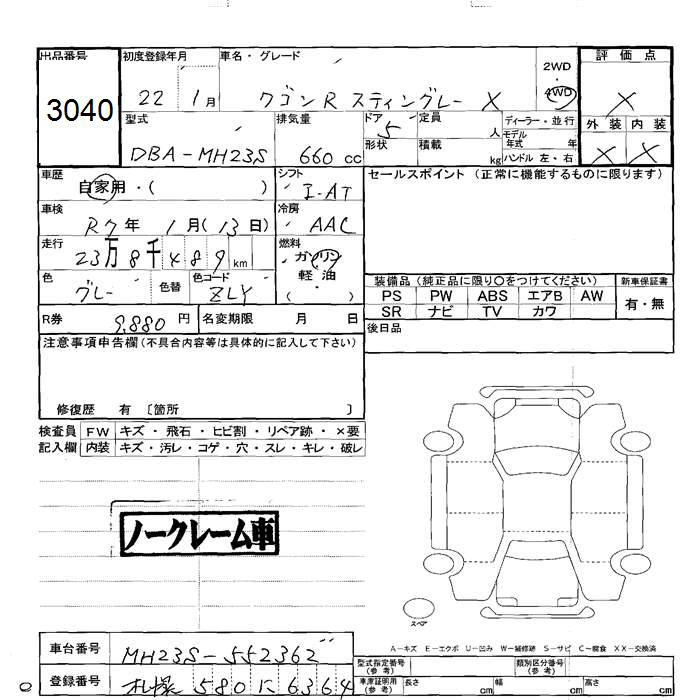 出品番号 初度登録年月 車名・グレード 2WD 評価点
3040 22 1月 ワゴンR スティングレー X 4WD X
型式 排気量 ドア 定員 ディーラー・並行 外装 内装
DBA-MH23S 660 cc 5 人 モデル年式 年 X X
形状 積載 kg ハンドル 左・右
車歴 シフト セールスポイント (正常に機能するものに限ります)
自家用・( ) I-AT
車検 冷房
R7年 1月(13日) AAC
走行 燃料
23万8千489km ガソリン
軽油
( )
色 色替 色コード 装備品 (純正品に限り○をつけてください) 新車保証書
グレー ZLY PS PW ABS エアB AW 有・無
SR ナビ TV カワ
R券 9,880 円 名変期限 月 日 後日品
注意事項申告欄(不具合内容等は具体的に記入して下さい)
修復歴 有 〔箇所 〕
検査員 FW キズ・飛石・ヒビ割・リペア跡・×要
記入欄 内装 キズ・汚レ・コゲ・穴・スレ・キレ・破レ
ノークレーム車
スペア
A-キズ E-エクボ U-凹み W-補修跡 S-サビ C-腐食 XX-交換済
車台番号 MH23S-552362 型式指定番号(参考) 類別区分番号(参考)
登録番号 札幌 580 に 6364 車庫証明用(参考) 長さ cm 幅 cm 高さ cm